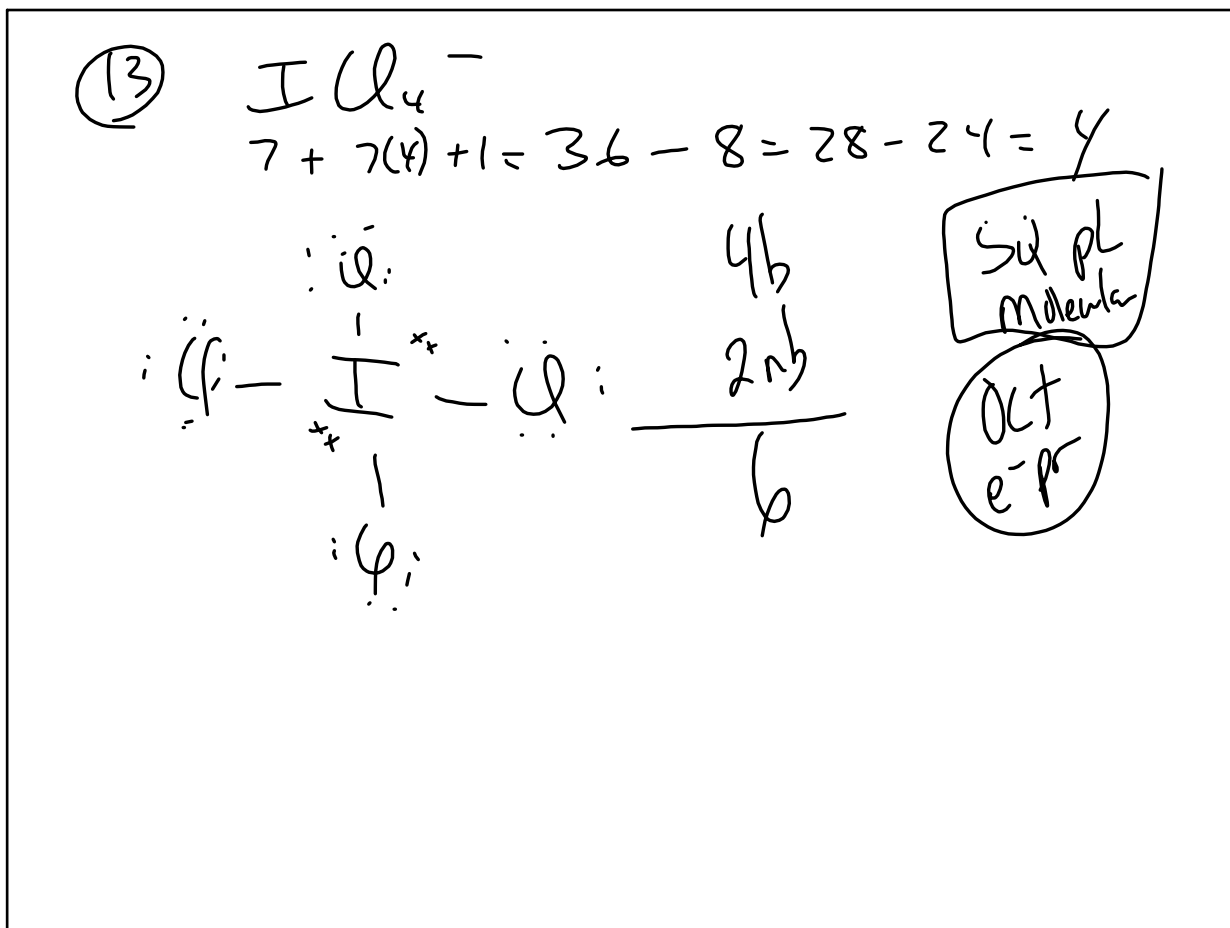 13 ICl₄⁻
7 + 7(4) + 1 = 36 - 8 = 28 - 24 = 4
Cl
Cl - I - Cl
Cl
4b
2nb
6
SQ pl
molecular
Oct
e⁻ pr